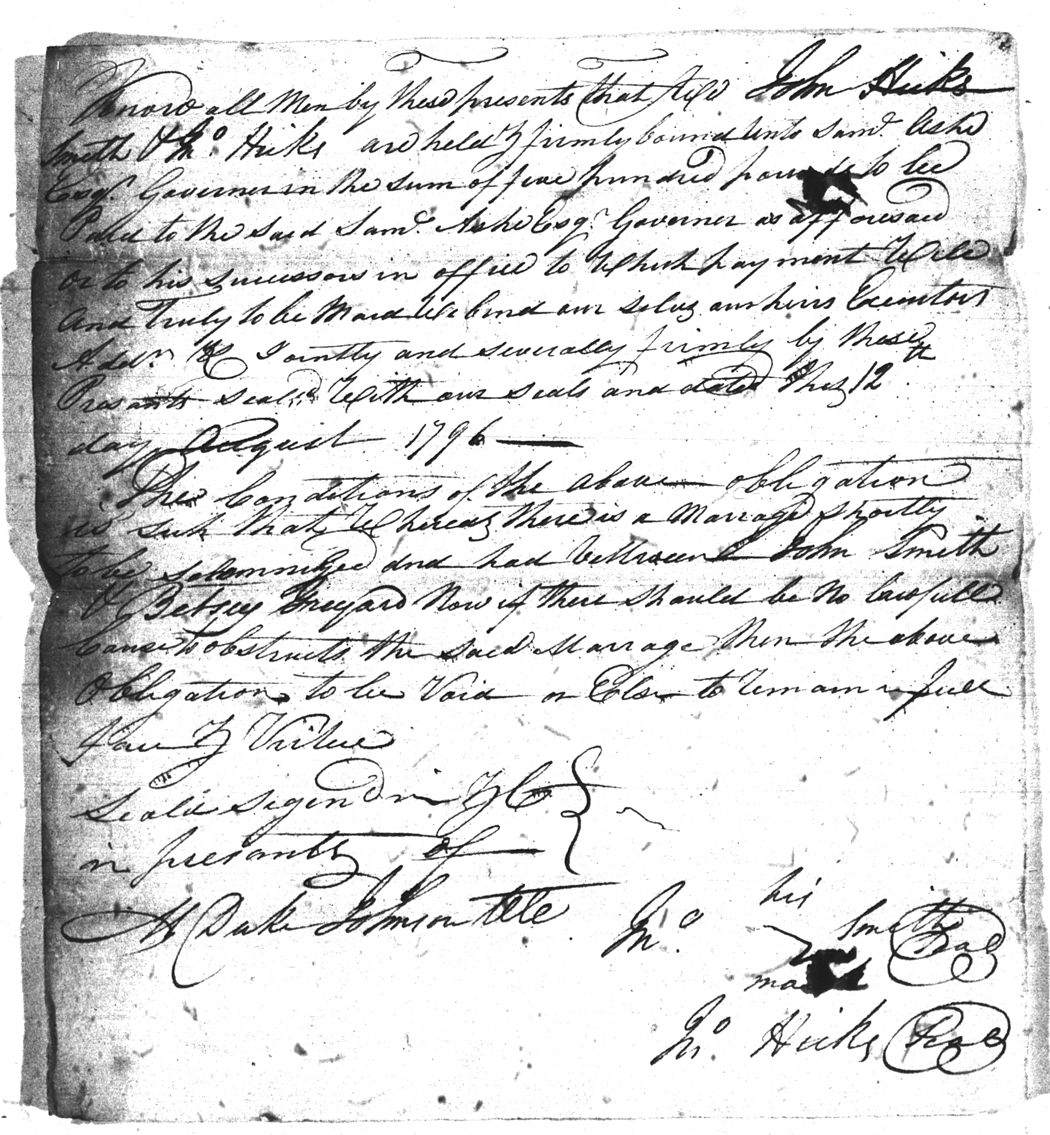 Know all Men by these presents that We John Hicks
Smith & Jno. Hicks are held & firmly bound unto Saml. Ashe
Esqr. Governer in the sum of five hundred pounds to be
Paid to the said Saml. Ashe Esqr. Governer as afforesaid
or to his sucessors in office to Which payment Well
And truly to be Maid We bend our selvz our heirs Executors
Add. &C Jointly and severally firmly by these
Presants seald With our seals and dated this 12th
day August 1796
The Conditions of the above obligation
is such that Whereaz there is a Marrage shortly
to be solemnized and had between John Smith
& Betsey Now if there should be No lawfull
Cause to obstructs the said Marrage then the above
Obligation to be Void or Else to remain in full
force & Virtue
Seald Sigend &C
in presants of
H Duke Johnson
Jno. his Smith Seal
mark
Jno. Hicks Seal